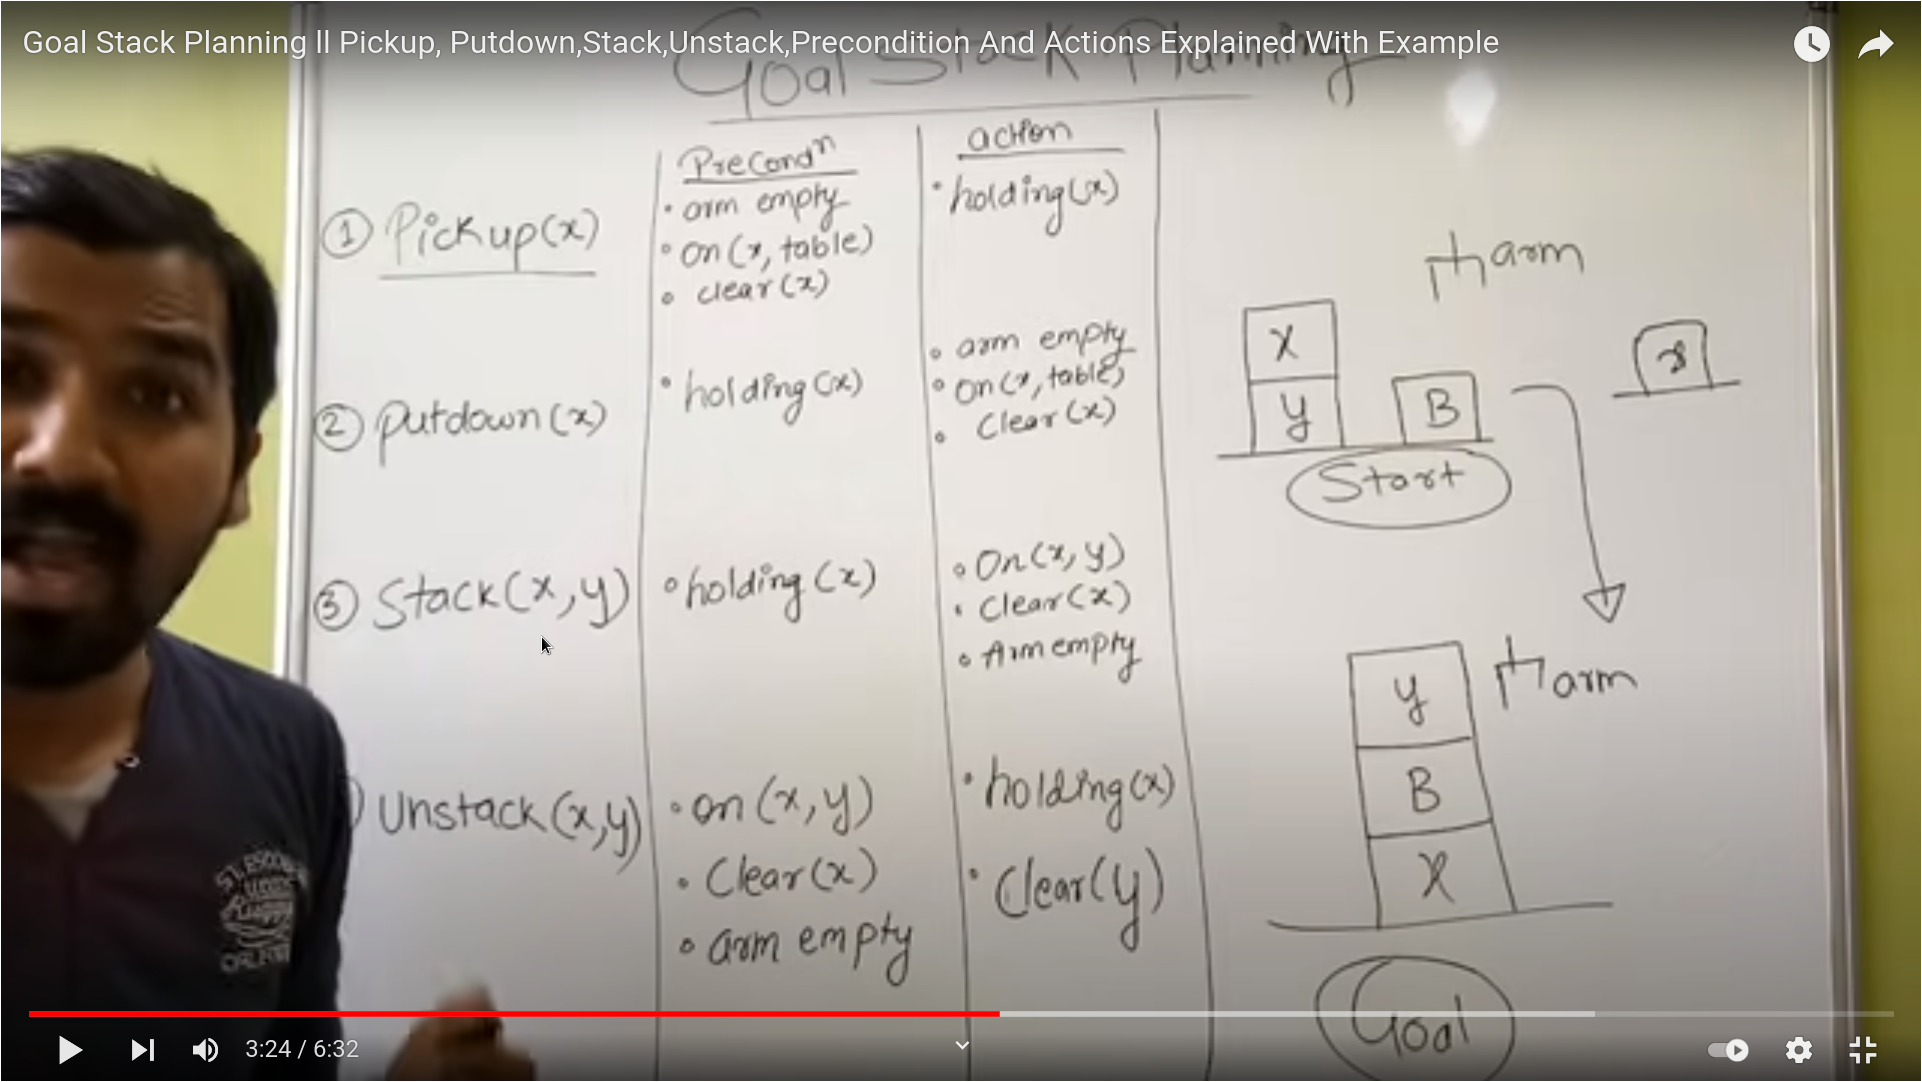 Goal Stack Planning ll Pickup, Putdown,Stack,Unstack,Precondition And Actions Explained With Example
Goal Stack Planning
Precondⁿ
action
① Pickup(x)
• arm empty
• on(x, table)
• clear(x)
• holding(x)
② putdown(x)
• holding(x)
• arm empty
• on(x, table)
• Clear(x)
③ Stack(x,y)
• holding(x)
• On(x, y)
• Clear(x)
• Arm empty
Unstack(x,y)
• on(x,y)
• Clear(x)
• arm empty
• holding(x)
• Clear(y)
arm
X
y
B
x
Start
arm
y
B
X
Goal
3:24 / 6:32